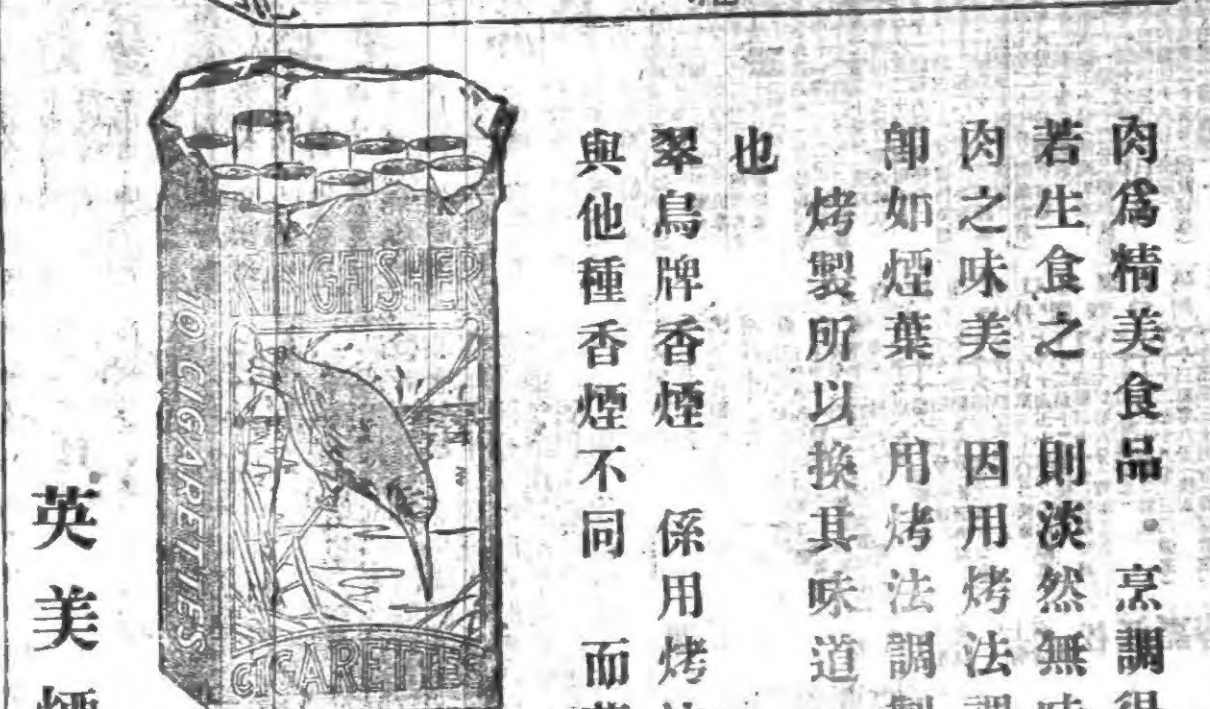 肉爲精美食品。烹調得
若生食之 則淡然無味
肉之味美 因用烤法調
卽如煙葉 用烤法調製
烤製所以換其味道
也
翠鳥牌香煙 係用烤
與他種香煙不同 而
KINGFISHER
10 CIGARETTES
CIGARETTES
英美煙